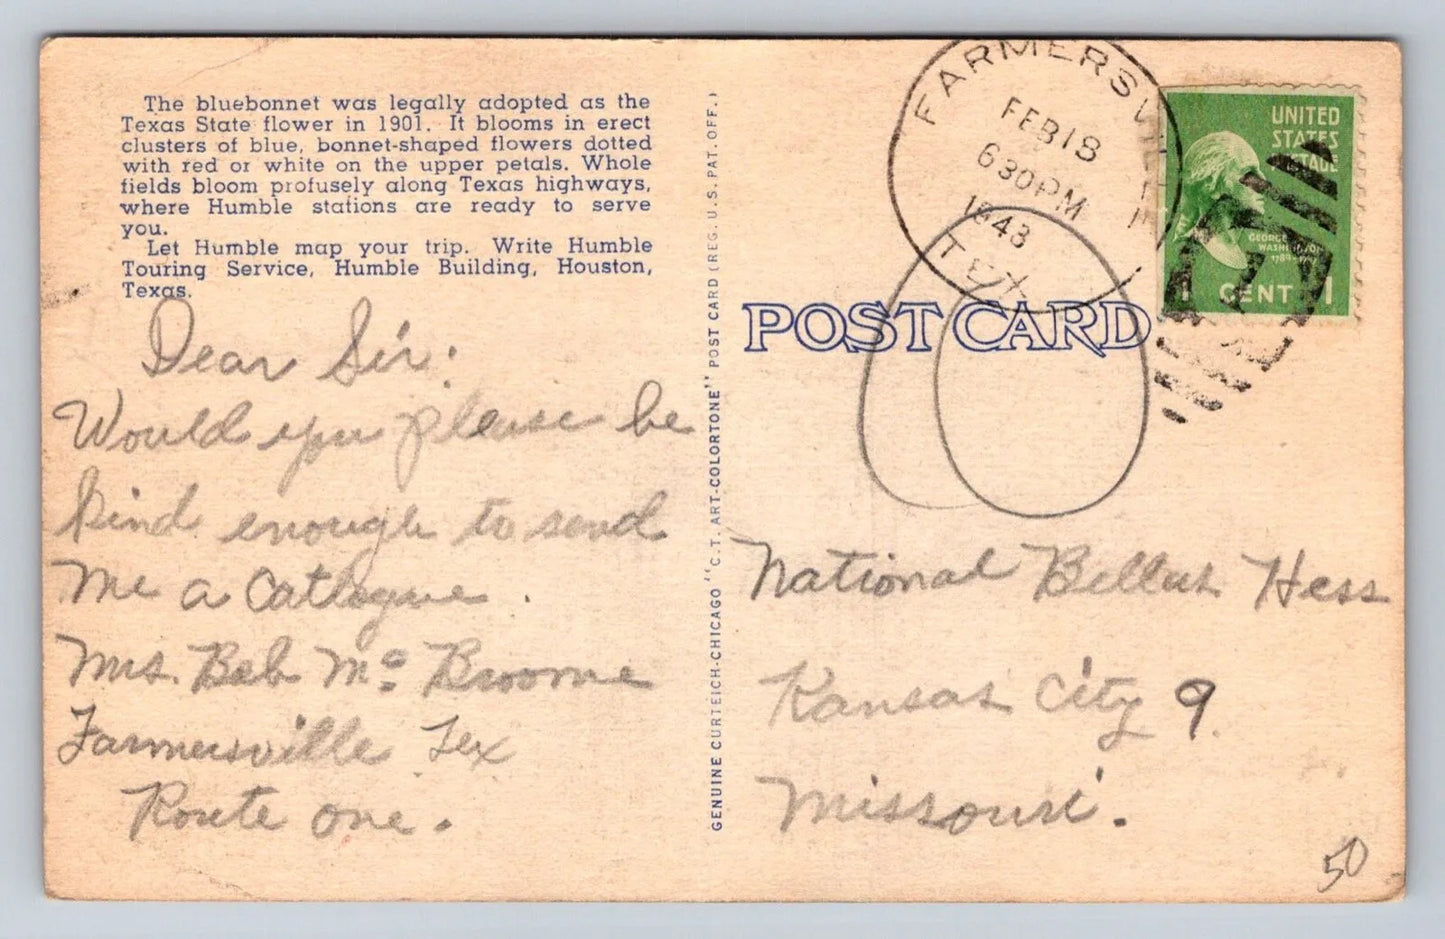 The bluebonnet was legally adopted as the
Texas State flower in 1901. It blooms in erect
clusters of blue, bonnet-shaped flowers dotted
with red or white on the upper petals. Whole
fields bloom profusely along Texas highways,
where Humble stations are ready to serve
you.
Let Humble map your trip. Write Humble
Touring Service, Humble Building, Houston,
Texas.
Dear Sir:
Would you please be
kind enough to send
me a Catlogue.
Mrs. Beb Mc Broome
Farmersville Tex
Route one.
GENUINE CURTEICH-CHICAGO "C.T. ART-COLORTONE" POST CARD (REG. U.S. PAT. OFF.)
FARMERSVILLE
FEB 18
630 PM
1943
TEX
UNITED
STATES
POSTAGE
GEORGE
WASHINGTON
1789-1797
1 CENT 1
POST CARD
National Bellas Hess
Kansas City 9.
Missouri.
50